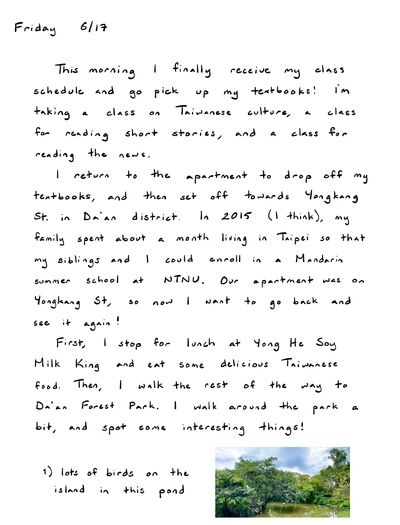 Friday 6/17
This morning I finally receive my class
schedule and go pick up my textbooks! I'm
taking a class on Taiwanese culture, a class
for reading short stories, and a class for
reading the news.
I return to the apartment to drop off my
textbooks, and then set off towards Yongkang
St. in Da'an district. In 2015 (I think), my
family spent about a month living in Taipei so that
my siblings and I could enroll in a Mandarin
summer school at NTNU. Our apartment was on
Yongkang St, so now I want to go back and
see it again!
First, I stop for lunch at Yong He Soy
Milk King and eat some delicious Taiwanese
food. Then, I walk the rest of the way to
Da'an Forest Park. I walk around the park a
bit, and spot some interesting things!
1) lots of birds on the
island in this pond